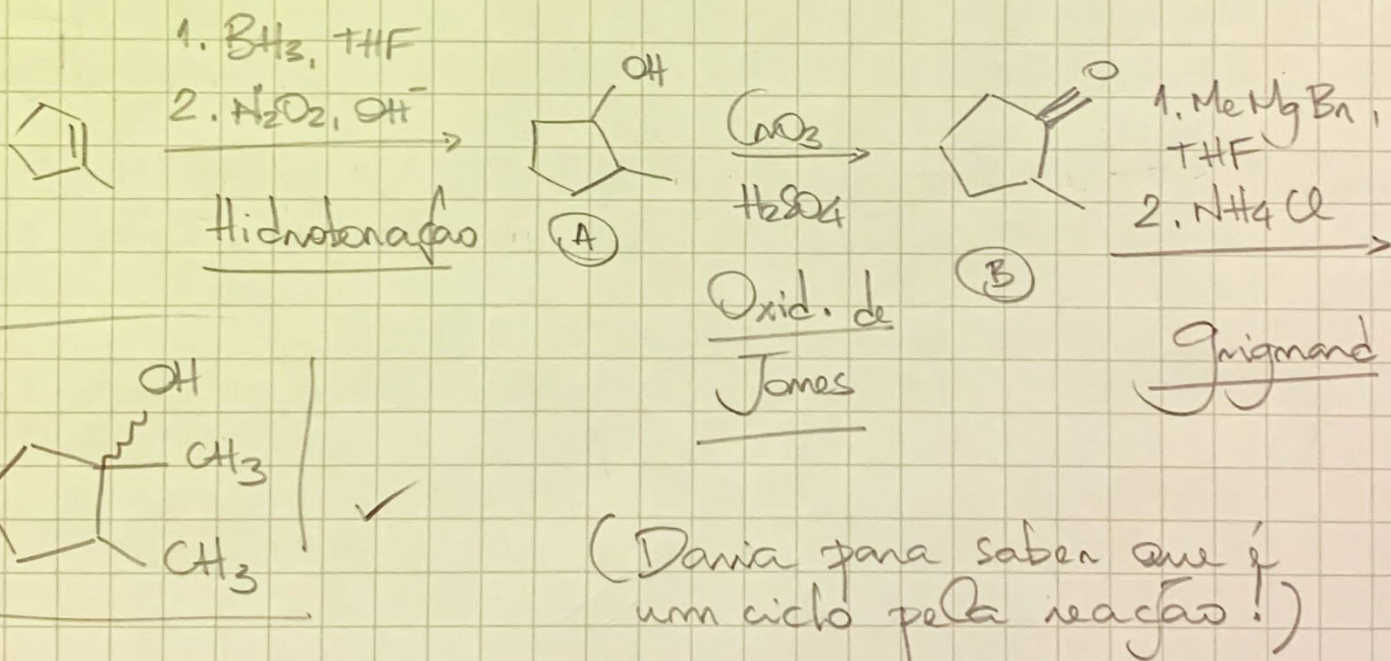 1. BH3, THF
2. H2O2, OH-
Hidroboração
OH
A
CrO3
H2SO4
Oxid. de
Jones
O
B
1. MeMgBr,
THF
2. NH4Cl
Grignard
OH
CH3
CH3
(Daria para saber que é
um ciclo pela reação!)